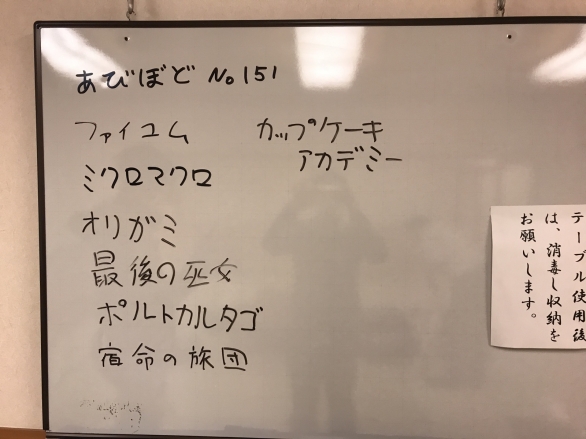 あびぼど No 151
ファイユム
ミクロマクロ
オリガミ
最後の巫女
ポルトカルタゴ
宿命の旅団
カップケーキ
アカデミー
テーブル使用後
は、消毒し収納を
お願いします。